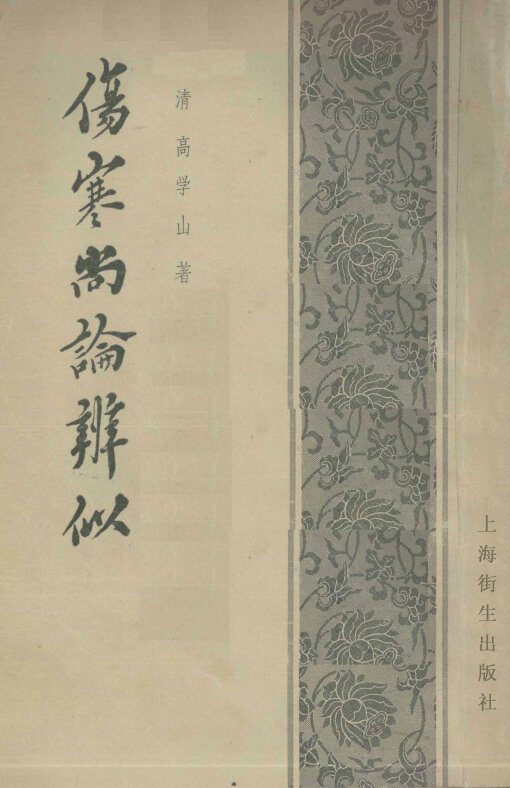 傷寒尚論辨似
清 高学山 著
上海街生出版社